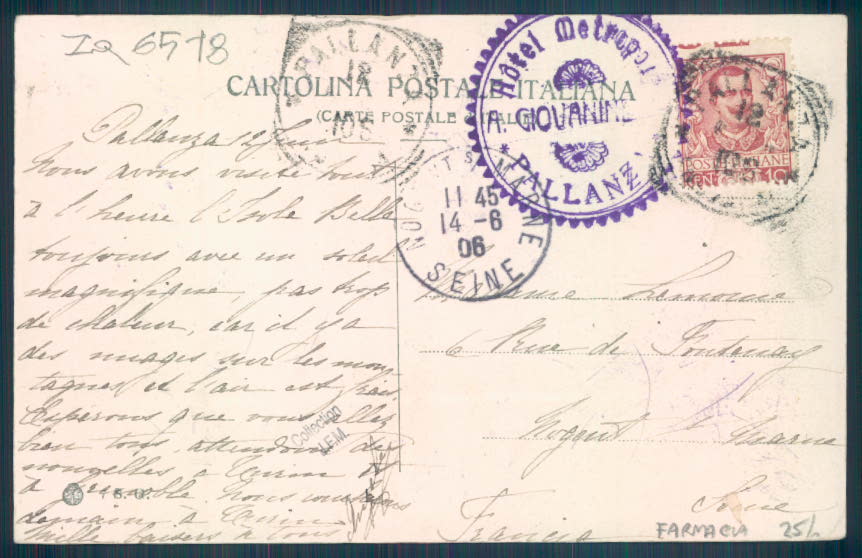 IQ 6578
CARTOLINA POSTALE ITALIANA
(CARTE POSTALE D'ITALIE)
PALLANZA
12
06
Hôtel Metropole
A. GIOVANINI
* PALLANZA
PALLANZA
12
POSTE ITALIANE
NOGENT S. MARNE
11 45
14 - 6
06
SEINE
Pallanza 12 Juin
Nous avons visité tout
à l'heure l'Isole Bella
toujours avec un soleil
magnifique, pas trop
de chaleur, car il y a
des nuages sur les mon
tagnes et l'air est frais
Esperons que vous allez
bien tous, attendons des
nouvelles à Turin et
à Grenoble. Nous
demain à Turin
Mille baisers à tous
Madame Lemoine
6 Rue de Fontenay
Nogent s/ Marne
Seine
Francia
Collection
J.F.M.
FARMACIA 25/-